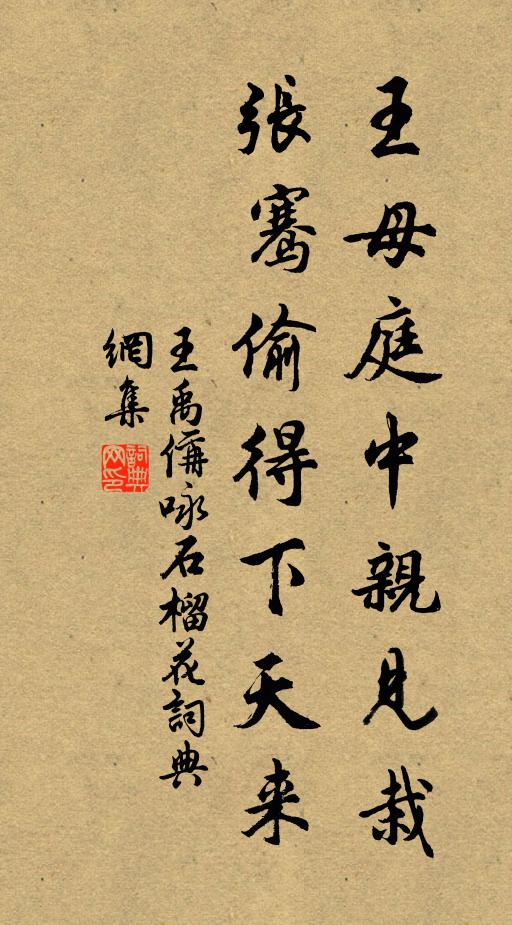 王母庭中親見栽
張騫偷得下天来
王禹偁咏石榴花詞典
網集
詞典
网印